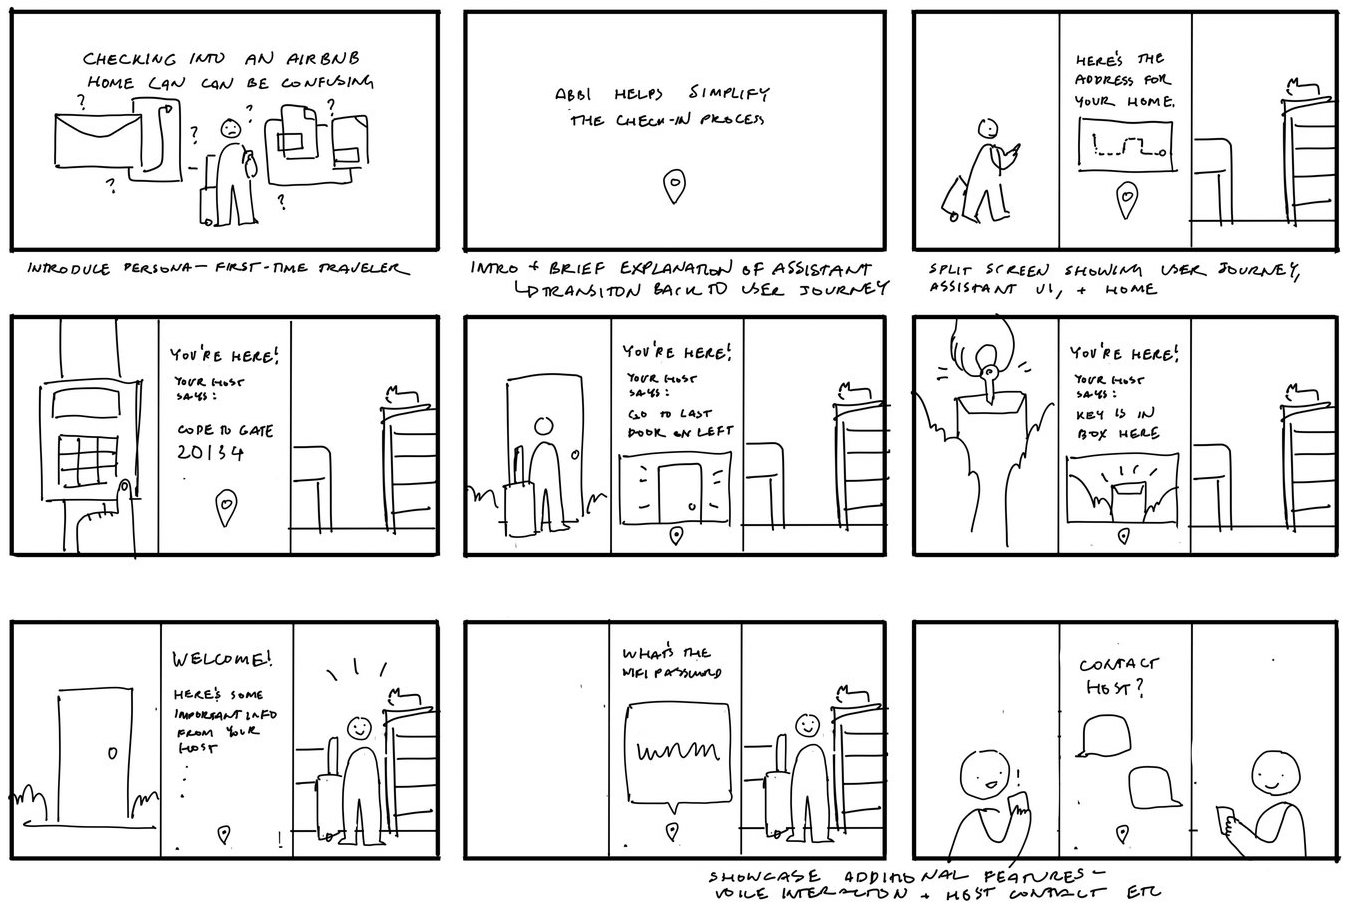 CHECKING INTO AN AIRBNB
HOME CAN CAN BE CONFUSING
?
?
?
?
?
?
INTRODUCE PERSONA — FIRST-TIME TRAVELER
ABBI HELPS SIMPLIFY
THE CHECK-IN PROCESS
INTRO + BRIEF EXPLANATION OF ASSISTANT
↳ TRANSITON BACK TO USER JOURNEY
HERE'S THE
ADDRESS FOR
YOUR HOME.
SPLIT SCREEN SHOWING USER JOURNEY,
ASSISTANT UI, + HOME
YOU'RE HERE!
YOUR HOST
SAYS:
CODE TO GATE
20134
YOU'RE HERE!
YOUR HOST
SAYS:
GO TO LAST
DOOR ON LEFT
YOU'RE HERE!
YOUR HOST
SAYS:
KEY IS IN
BOX HERE
WELCOME!
HERE'S SOME
IMPORTANT INFO
FROM YOUR
HOST
!
WHAT'S THE
WIFI PASSWORD
CONTACT
HOST?
!
SHOWCASE ADDITIONAL FEATURES —
VOICE INTERACTION + HOST CONTACT ETC